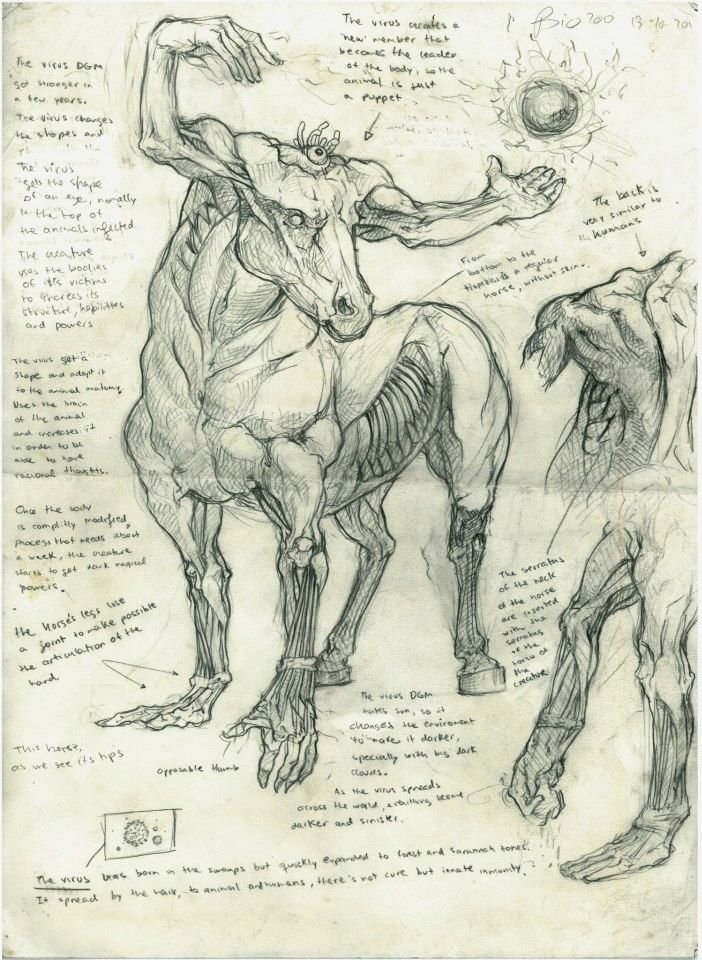 Bio200 13-10-201
The virus creates a
new member that
becomes the leader
of the body, so the
animal is just
a puppet
The virus DGM
got stronger in
a few years.
The virus changes
the shapes and
The virus
gets the shape
of an eye, normally
in the top of
the animals infected
The creature
uses the bodies
of it's victims
to increas its
structure, habilities
and powers
The back is
very similar to
human's
From
bottom to the
is a regular
horse, without skin.
The virus get
shape and adapt it
to the animal anatomy.
Uses the brain
of the animal
and increases it
in order to be
able to have
racional thoughts.
Once the body
is complitly modified,
process that needs about
a week, the creature
starts to get dark magical
powers.
the horse's legs lose
a joint to make possible
the articulation of the
hand
The serratus
of the neck
of the horse
are inserted
with the
serratus
of the
torso of
the
creature
This horse,
as we see it's tips
opposable thumb
The virus DGM
hates sun, so it
changes the enviroment
to make it darker,
specially with big dark
clouds.
As the virus spreads
across the world, everithing become
darker and sinister.
The virus was born in the swamps but quickly expanded to forest and savannah zones.
It spread by the hair, to animal and humans, there's not cure but innate immunity